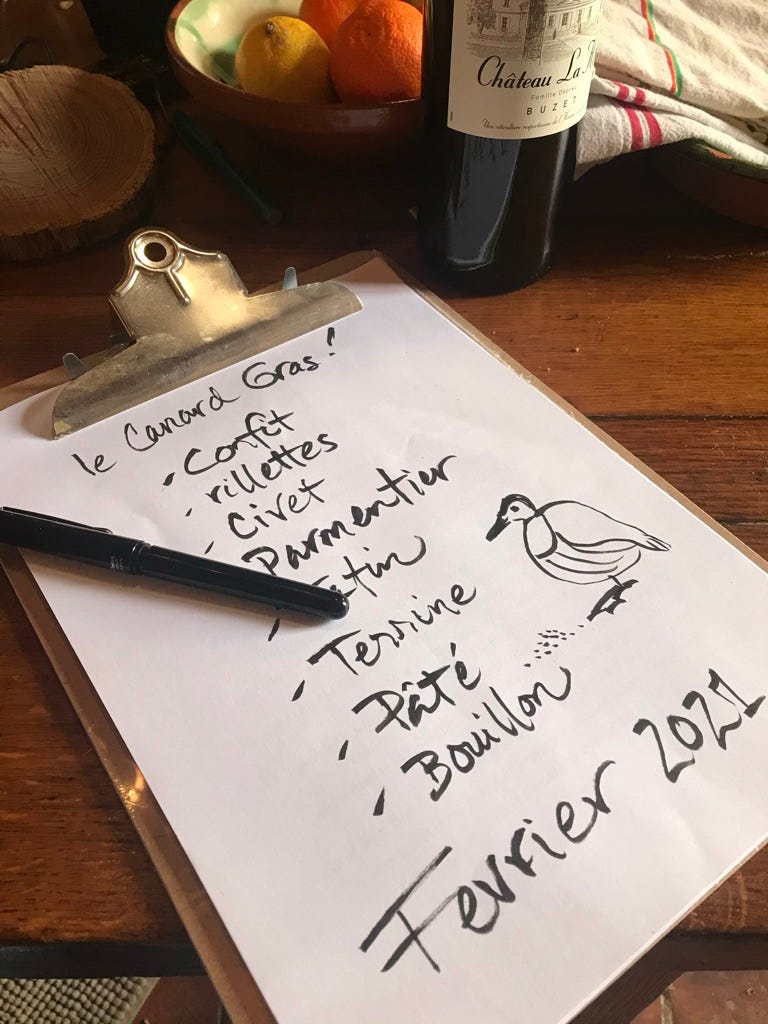 Château La
Famille Deprez
BUZET
le Canard Gras!
· Confit
· rillettes
- Civet
- Parmentier
- Terrine
- Pâté
- Bouillon
Fevrier 2021